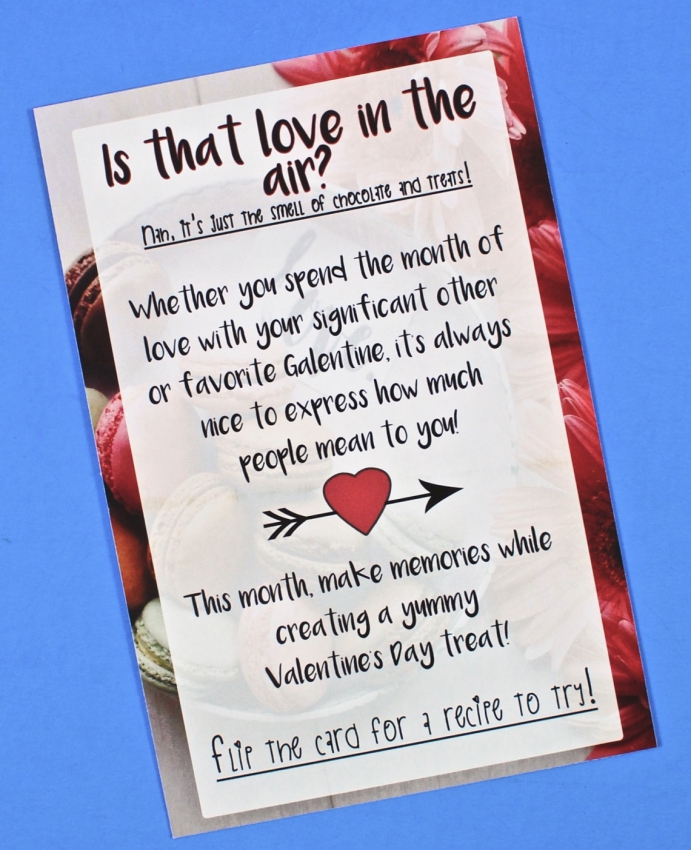 Is that love in the
air?
Nah, it's just the smell of chocolate and treats!
Whether you spend the month of
love with your significant other
or favorite Galentine, it's always
nice to express how much
people mean to you!
This month, make memories while
creating a yummy
Valentine's Day treat!
flip the card for a recipe to try!